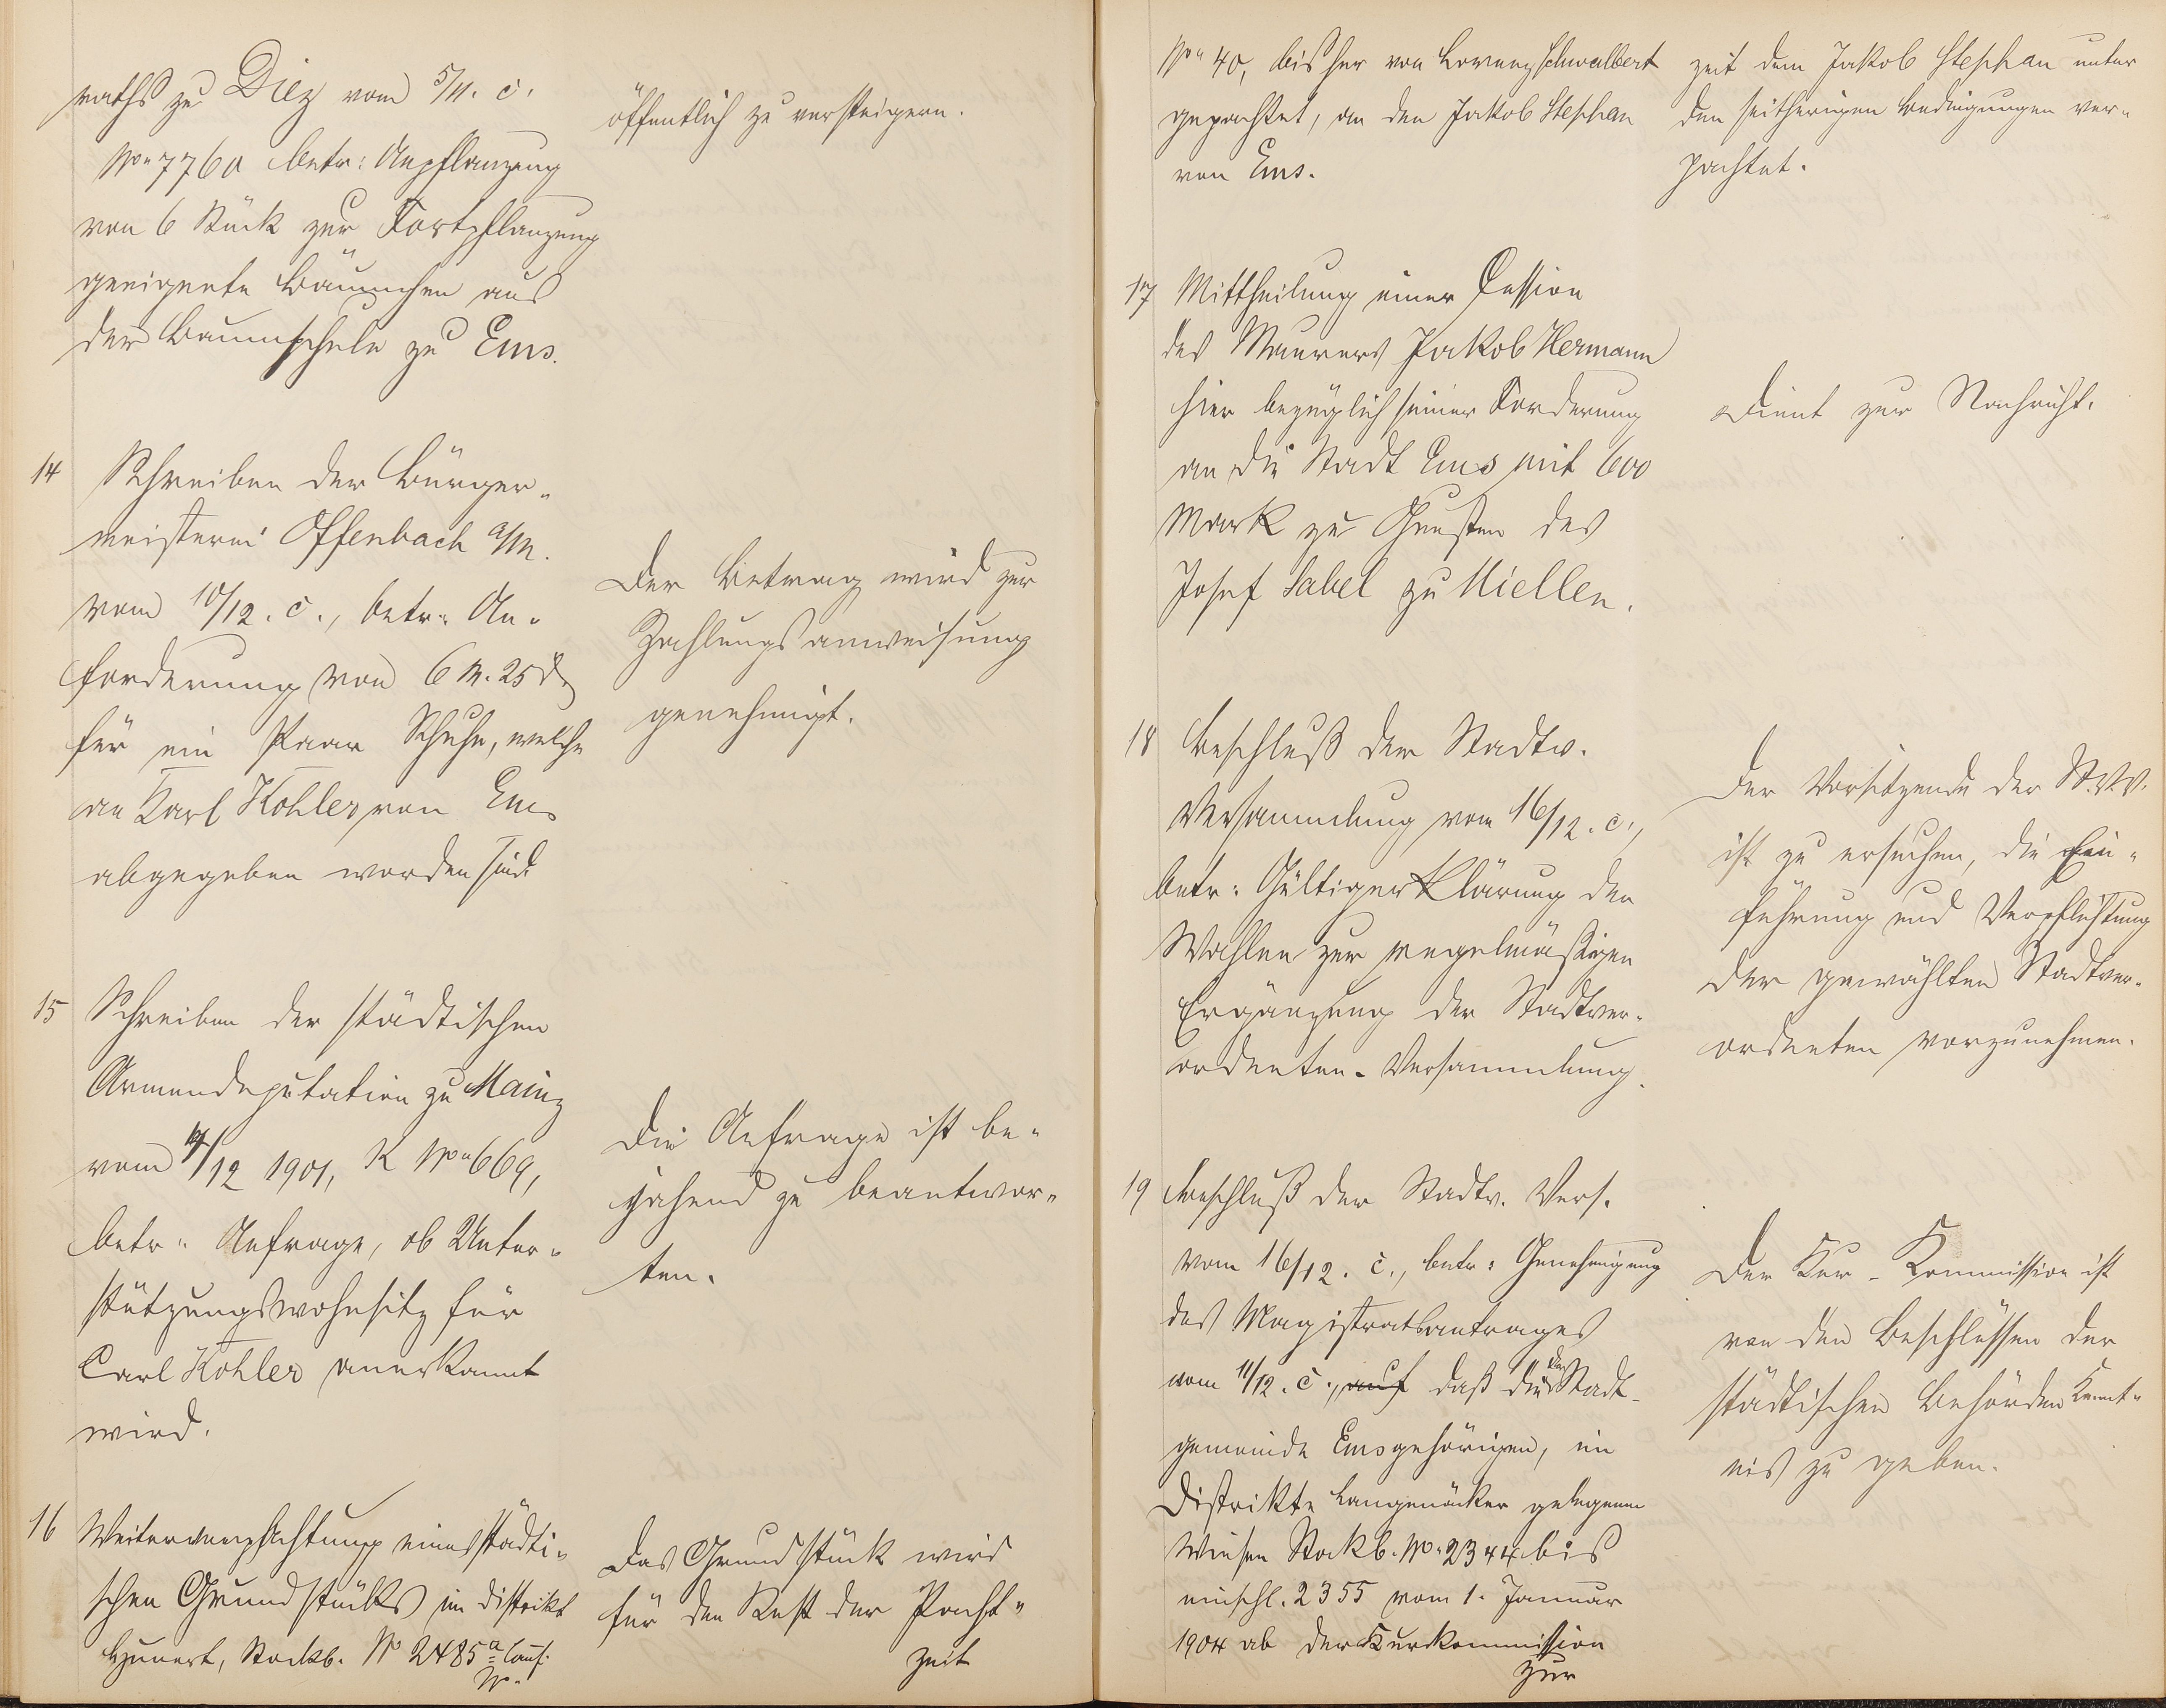 raths zu Diez vom 5/11. c.
No 7760 betr: Anpflanzung
von 6 Stück zur Fortpflanzung
geeignete Bäumchen aus
der Baumschule zu Ems.
öffentlich zu versteigern.
14 Schreiben der Bürger-
meisterei Offenbach a/M.
vom 10/12. c., betr: An-
forderung von 6 M. 25 d
für ein Paar Schuhe, welche
an Karl Kohler von Ems
abgegeben worden sind.
Der Betrag wird zur
Zahlungsanweisung
genehmigt.
15 Schreiben der städtischen
Armendeputation zu Mainz
vom /12 1901, K No 669,
betr: Anfrage, ob Unter-
stützungswohnsitz für
Carl Kohler anerkannt
wird.
Die Anfrage ist be-
jahend zu beantwor-
ten.
16 Weiterverpachtung eines städti-
schen Grundstücks im Distrikt
Stockb. No 2485a lauf.
No.
Das Grundstück wird
für den Rest der Pacht-
zeit
No 40, bisher von Lorenz Schwalbert
gepachtet, an den Jakob Stephan
von Ems.
zeit dem Jakob Stephan unter
den seitherigen Bedingungen ver-
pachtet.
17 Mittheilung einer Cession
des Maurers Jakob Hermann
hier bezüglich seiner Forderung
an die Stadt Ems mit 600
Mark zu Gunsten des
Josef Sabel zu Miellen.
Dient zur Nachricht.
18 Beschluß der Stadtv.
Versammlung vom 16/12. c.,
betr: Gültigerklärung der
Wahlen zur regelmäßigen
Ergänzung der Stadtver-
ordneten-Versammlung.
Der Vorsitzende der St.V.V.
ist zu ersuchen, die Ein-
führung und Verpflichtung
der gewählten Stadtver-
ordneten vorzunehmen.
19 Beschluß der Stadtv. Vers.
vom 16/12. c., betr: Genehmigung
des Magistratsantrages
vom 11/12. c., auf daß die der Stadt-
gemeinde Ems gehörigen, im
Distrikte Langenäcker gelegenen
Wiesen Stockb. No. 2344 bis
einschl. 2355 vom 1. Januar
1904 ab der Kurkommission
zur
Der Kur-Kommission ist
von den Beschlüssen der
städtischen Behörden Kennt-
nis zu geben.